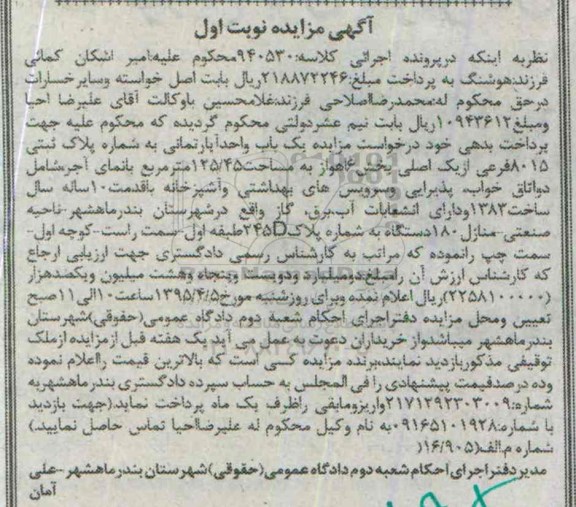 آگهی مزایده نوبت اول
نظربه اینکه درپرونده اجرائی کلاسه:۹۴۰۵۳۰محکوم علیه:امیر اشکان کمائی
فرزند:هوشنگ به پرداخت مبلغ:۲۱۸۸۷۲۲۴۶ریال بابت اصل خواسته وسایرخسارات
درحق محکوم له:محمدرضااصلاحی فرزند:غلامحسین باوکالت آقای علیرضا احیا
ومبلغ۱۰۹۴۳۶۱۲ریال بابت نیم عشردولتی محکوم گردیده که محکوم علیه جهت
پرداخت بدهی خود درخواست مزایده یک باب واحدآپارتمانی به شماره پلاک ثبتی
۸۰۱۵فرعی ازیک اصلی بخش اهواز به مساحت۱۲۵/۴۵مترمربع بانمای آجر:شامل
دواتاق خواب، پذیرایی وسرویس های بهداشتی وآشپزخانه باقدمت۱۰ساله سال
ساخت۱۳۸۳ودارای انشعابات آب،برق، گاز واقع درشهرستان بندرماهشهر-ناحیه
صنعتی-منازل۱۸۰دستگاه به شماره پلاک۲۴۵Dطبقه اول-سمت راست--کوچه اول-
سمت چپ رانموده که مراتب به کارشناس رسمی دادگستری جهت ارزیابی ارجاع
که کارشناس ارزش آن رامبلغ دومیلیارد ودویست وپنجاه وهشت میلیون ویکصدهزار
(۲۲۵۸۱۰۰۰۰۰)ریال اعلام نمده وبرای روزشنبه مورخ۱۳۹۵/۴/۵ساعت۱۰الی۱۱صبح
تعیین ومحل مزایده دفتراجرای احکام شعبه دوم دادگاه عمومی(حقوقی)شهرستان
بندرماهشهر میباشدواز خریداران دعوت به عمل می آید یک هفته قبل ازمزایده ازملک
توقیفی مذکوربازدید نمایند،برنده مزایده کسی است که بالاترین قیمت رااعلام نموده
وده درصدقیمت پیشنهادی را فی المجلس به حساب سپرده دادگستری بندرماهشهربه
شماره:۲۱۷۱۲۹۲۳۰۳۰۰۹واریزومابقی راظرف یک ماه پرداخت نماید.(جهت بازدید
با شماره:۰۹۱۶۵۱۰۱۹۲۸به نام وکیل محکوم له علیرضااحیا تماس حاصل نمایید.)
شماره م.الف(۱۶/۹۰۵)
مدیردفتراجرای احکام شعبه دوم دادگاه عمومی(حقوقی)شهرستان بندرماهشهر-علی
آمان